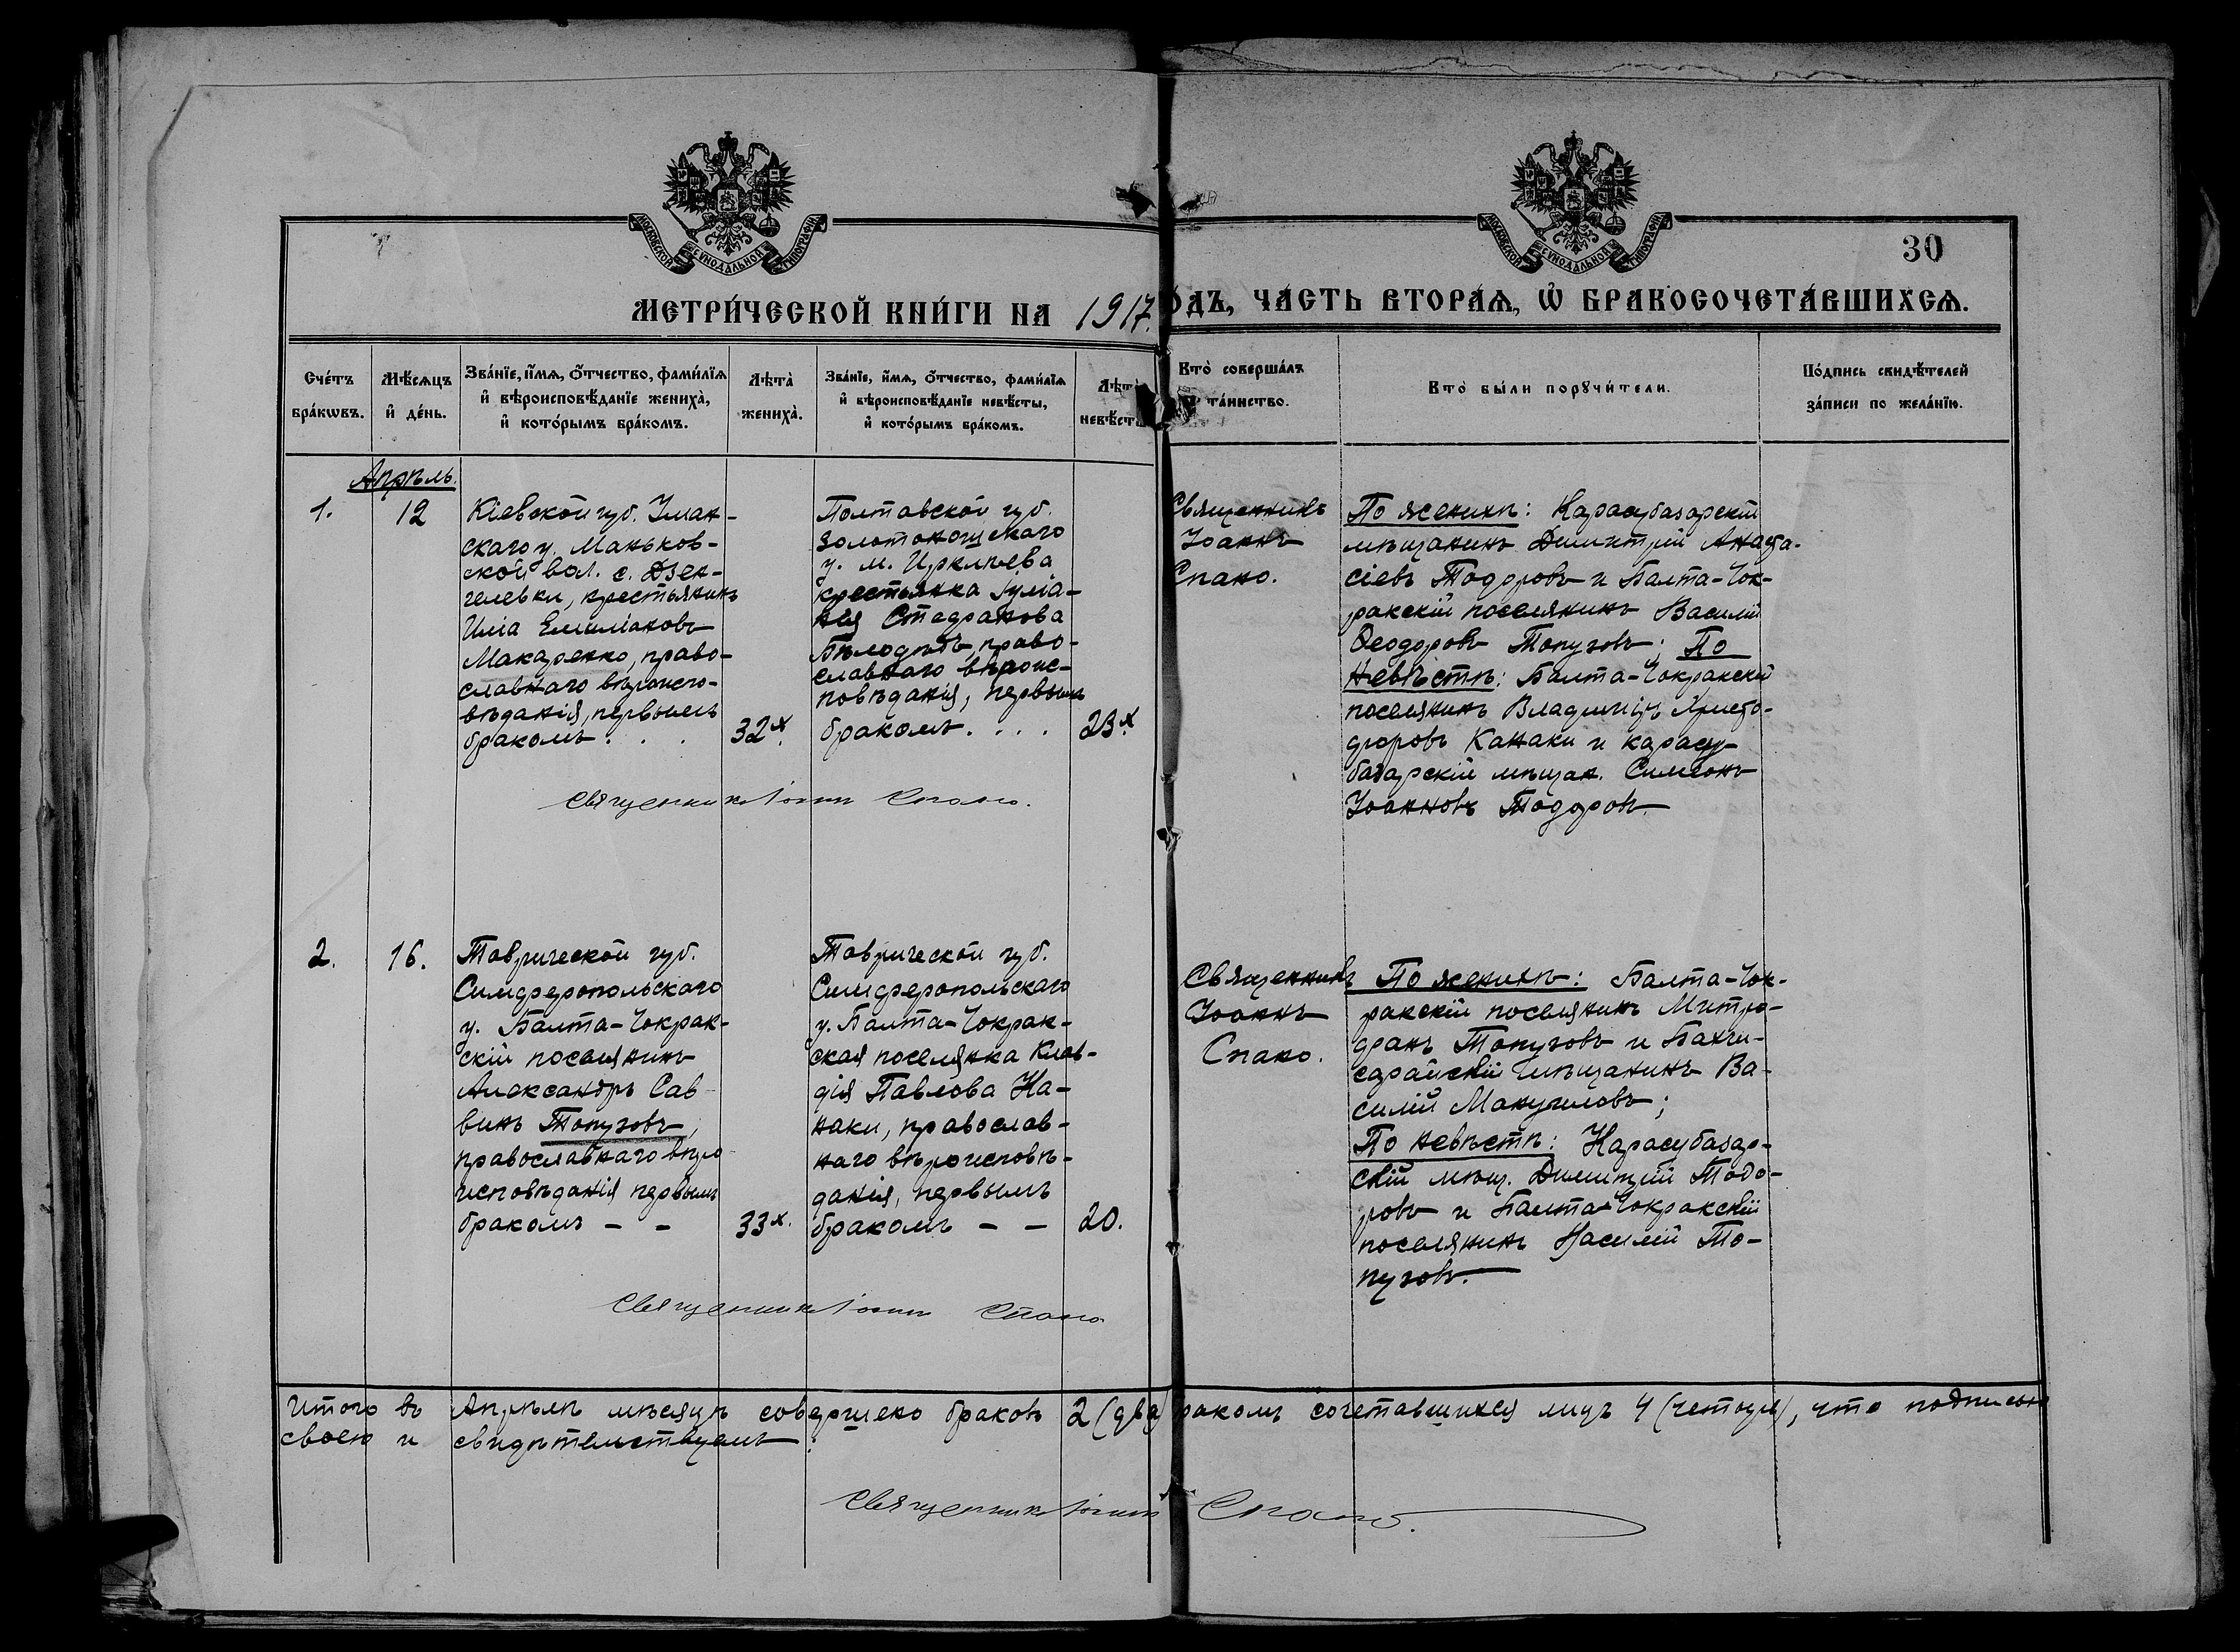 МОСКОВСКОЙ СѴНОДАЛЬНОЙ ТИПОГРАФІИ
МОСКОВСКОЙ СѴНОДАЛЬНОЙ ТИПОГРАФІИ
30
МЕТРИ́ЧЕСКОЙ КНИ́ГИ НА 1917 ОДЪ, ЧА́СТЬ ВТОРА́Ѧ, Ѽ БРАКОСОЧЕТА́ВШИХСѦ.
Сче́тъ
бра́кѡвъ.
Мѣ́сѧцъ
и҆ де́нь.
Зва́нїе, и҆́мѧ, ѻ҆́тчество, фами́лїѧ
и҆ вѣроисповѣ́данїе жениха̀,
и҆ кото́рымъ бра́комъ.
Лѣта̀
жениха̀.
Зва́нїе, и҆́мѧ, ѻ҆́тчество, фами́лїѧ
и҆ вѣроисповѣ́данїе невѣ́сты,
и҆ кото́рымъ бра́комъ.
Лѣта̀
невѣ́ст
Кто̀ соверша́лъ
та́инство.
Кто̀ бы́ли порꙋчи́тели.
По́дпись свидѣ́телей
за́писи по жела́нїю.
Апрѣль.
1.
12
Кіевской губ. Уман-
скаго у. Маньков-
ской вол. с. Дзен-
гелевки, крестьянинъ
Иліа Емиліановъ
Макаренко, право-
славнаго вѣроиспо-
вѣданія, первымъ
бракомъ . . .
32х.
Полтавской губ.
Золотоношскаго
у. м. Ирклѣева
крестьянка Іуліа-
нія Стефанова
Бѣлодѣдъ, право-
славнаго вѣроис-
повѣданія, первымъ
бракомъ . . . .
23х.
Священникъ
Іоаннъ
Спано.
По женихѣ: Карасубазарскій
мѣщанинъ Димитрій Анаста-
сіевъ Тодоровъ и Балта-Чок-
ракскій поселянинъ Василій
Ѳеодоровъ Топузовъ; По
Невѣстѣ: Балта-Чокракскій
поселянинъ Владиміръ Христо-
форовъ Канаки и карасу-
базарскій мѣщан. Симеонъ
Іоанновъ Тодоровъ.
Священникъ Іоаннъ Спано.
2.
16.
Таврической губ.
Симферопольскаго
у. Балта-Чокрак-
скій поселянинъ
Александръ Сав-
винъ Топузовъ,
православнаго вѣро-
исповѣданія первымъ
бракомъ - -
33х.
Таврической губ.
Симферопольскаго
у. Балта-Чокрак-
ская поселянка Клав-
дія Павлова Ка-
наки, православ-
наго вѣроисповѣ-
данія, первымъ
бракомъ - -
20.
Священникъ
Іоаннъ
Спано.
По женихѣ: Балта-Чок-
ракскій поселянинъ Митро-
фанъ Топузовъ и Бахчи-
сарайскій мѣщанинъ Ва-
силій Манугиловъ;
По невѣстѣ: Карасубазар-
скій мѣщ. Димитрій Тодо-
ровъ и Балта-Чокракскій
поселянинъ Василій То-
пузовъ.
Священникъ Іоаннъ Спано
Итого въ Апрѣлѣ мѣсяцѣ совершено браковъ 2 (два) бракомъ сочетавшихся лицъ 4 (четыре), что подписью
своею и свидѣтельствуемъ:
Священникъ Іоаннъ Спано.